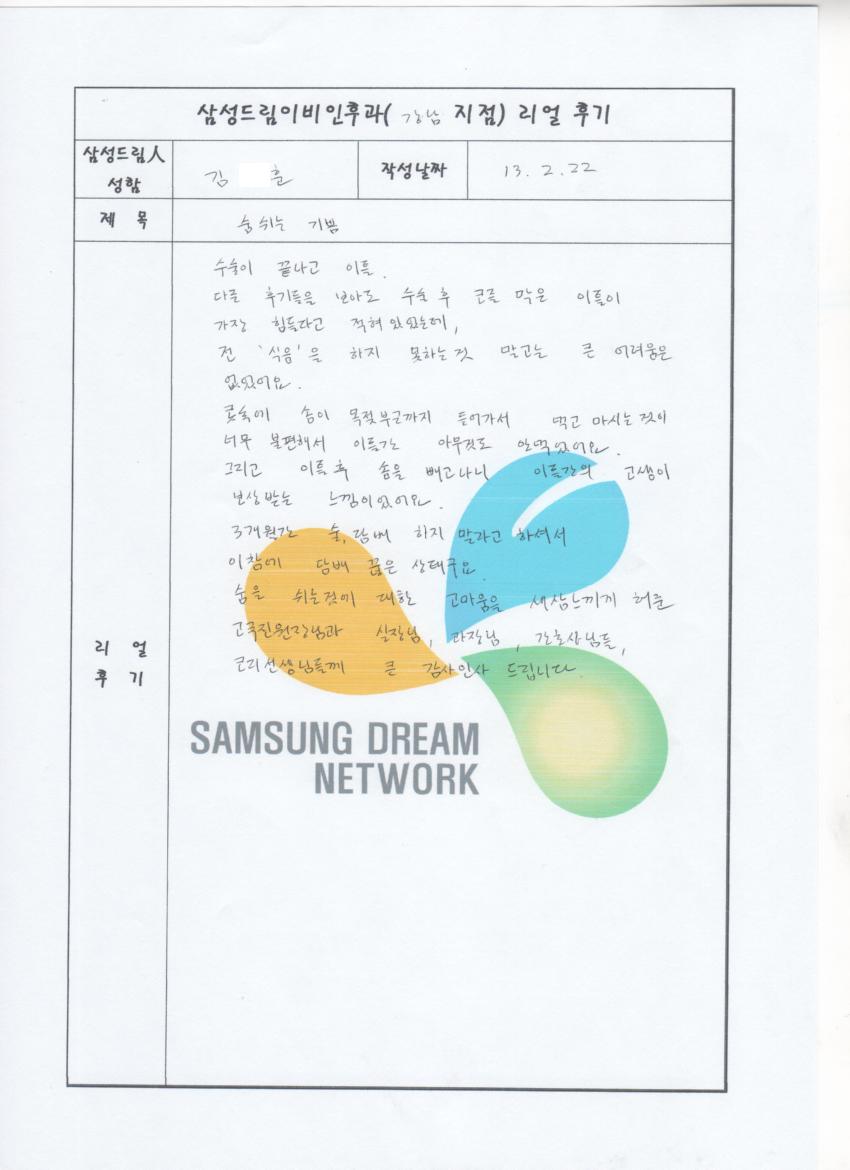 삼성드림이비인후과( 강남 지점) 리얼 후기
삼성드림人
성함
김 훈
작성날짜
13. 2. 22
제 목
숨쉬는 기쁨
수술이 끝나고 이틀.
다른 후기들을 보아도 수술 후 코를 막은 이틀이
가장 힘들다고 적혀 있었는데,
전 '식음'을 하지 못하는것 말고는 큰 어려움은
없었어요.
콧속에 솜이 목젖부근까지 들어가서 먹고 마시는 것이
너무 불편해서 이틀간 아무것도 안먹었어요.
그리고 이틀 후 솜을 빼고나니 이틀간의 고생이
보상받는 느낌이었어요.
3개월간 술, 담배 하지 말라고 하셔서
이참에 담배 끊은 상태구요.
숨을 쉬는것에 대한 고마움을 새삼느끼게 해준
고국진원장님과 실장님, 과장님, 간호사님들,
코디선생님들께 큰 감사인사 드립니다.
리 얼
후 기
SAMSUNG DREAM
NETWORK